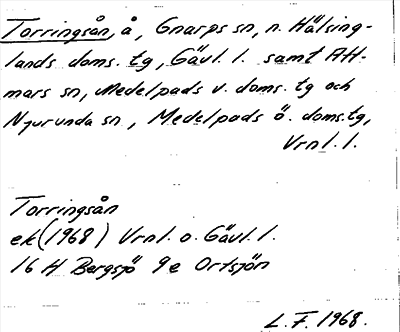 Torringsån, å, Gnarps sn, n. Hälsing-
lands doms. tg, Gävl. l. samt Att-
mars sn, Medelpads v. doms. tg och
Njurunda sn, Medelpads ö. doms.tg,
Vrnl. l.
Torringsån
ek (1968) Vrnl. o. Gävl. l.
16 H Bergsjö 9e Ortsjön
L. F. 1968.